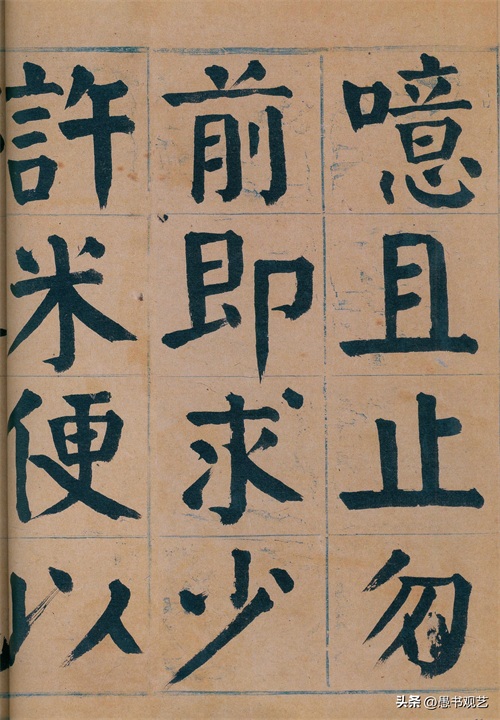 噫且止勿
前即求少
許米便以
头条 @愚书观艺